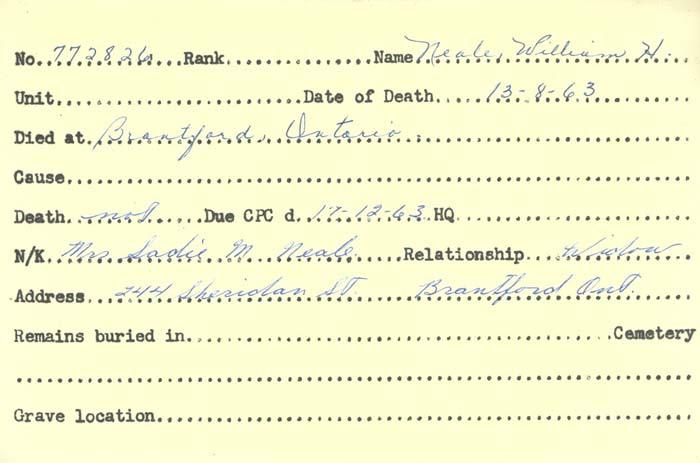 No. 772826 Rank Name Neale, William H.
Unit Date of Death 13-8-63
Died at Brantford, Ontario.
Cause
Death not Due CPC d. 17-12-63 HQ
N/K Mrs Sadie M. Neale Relationship Widow
Address 244 Sheridan St. Brantford Ont.
Remains buried in Cemetery
Grave location